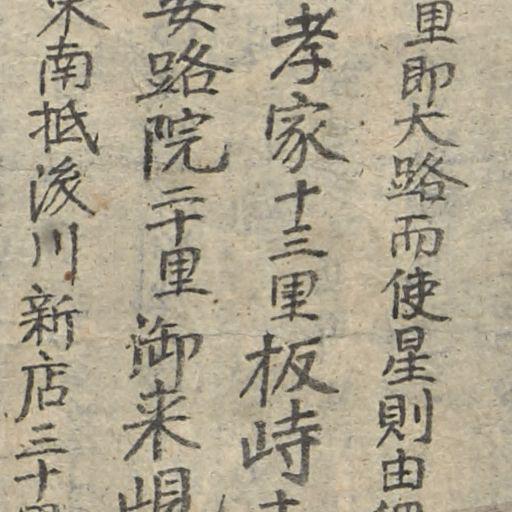 里即大路而使星則由
孝家十三里板峙十
安路院二十里御来峴
東南抵後川新店三十里